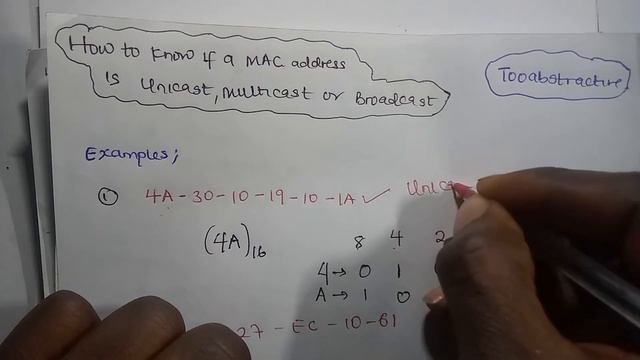 How to know if a MAC address
is Unicast, Multicast or Broadcast
Tooabstractive
Examples;
① 4A-30-10-19-10-1A ✓ Unica
(4A)16
8 4 2
4→ 0 1
A→ 1 0
27 - EC - 10 - 61